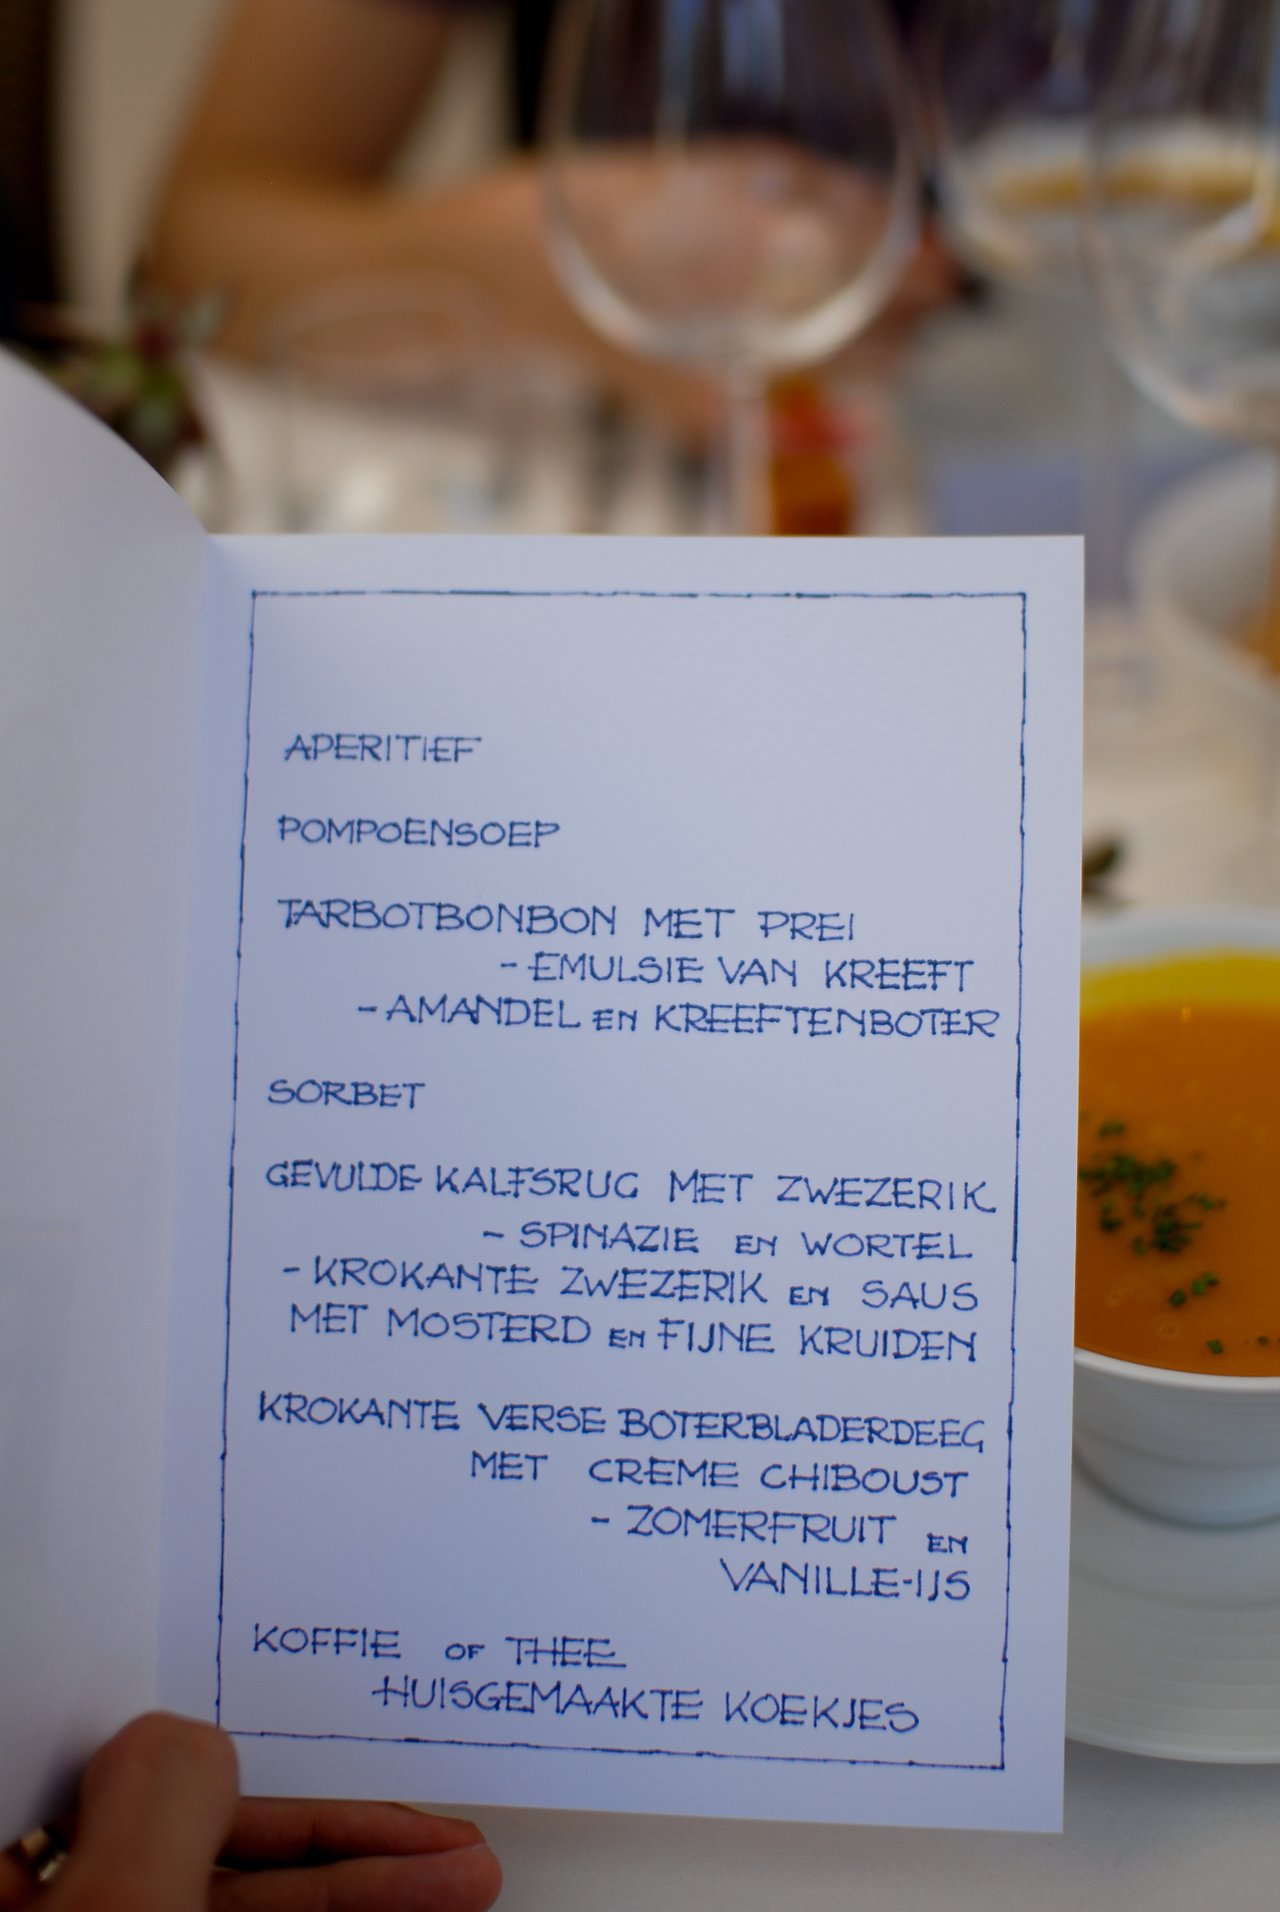 APERITIEF
POMPOENSOEP
TARBOTBONBON MET PREI
- EMULSIE VAN KREEFT
- AMANDEL EN KREEFTENBOTER
SORBET
GEVULDE KALFSRUG MET ZWEZERIK
- SPINAZIE EN WORTEL
- KROKANTE ZWEZERIK EN SAUS
MET MOSTERD EN FIJNE KRUIDEN
KROKANTE VERSE BOTERBLADERDEEG
MET CREME CHIBOUST
- ZOMERFRUIT EN
VANILLE-IJS
KOFFIE OF THEE
HUISGEMAAKTE KOEKJES